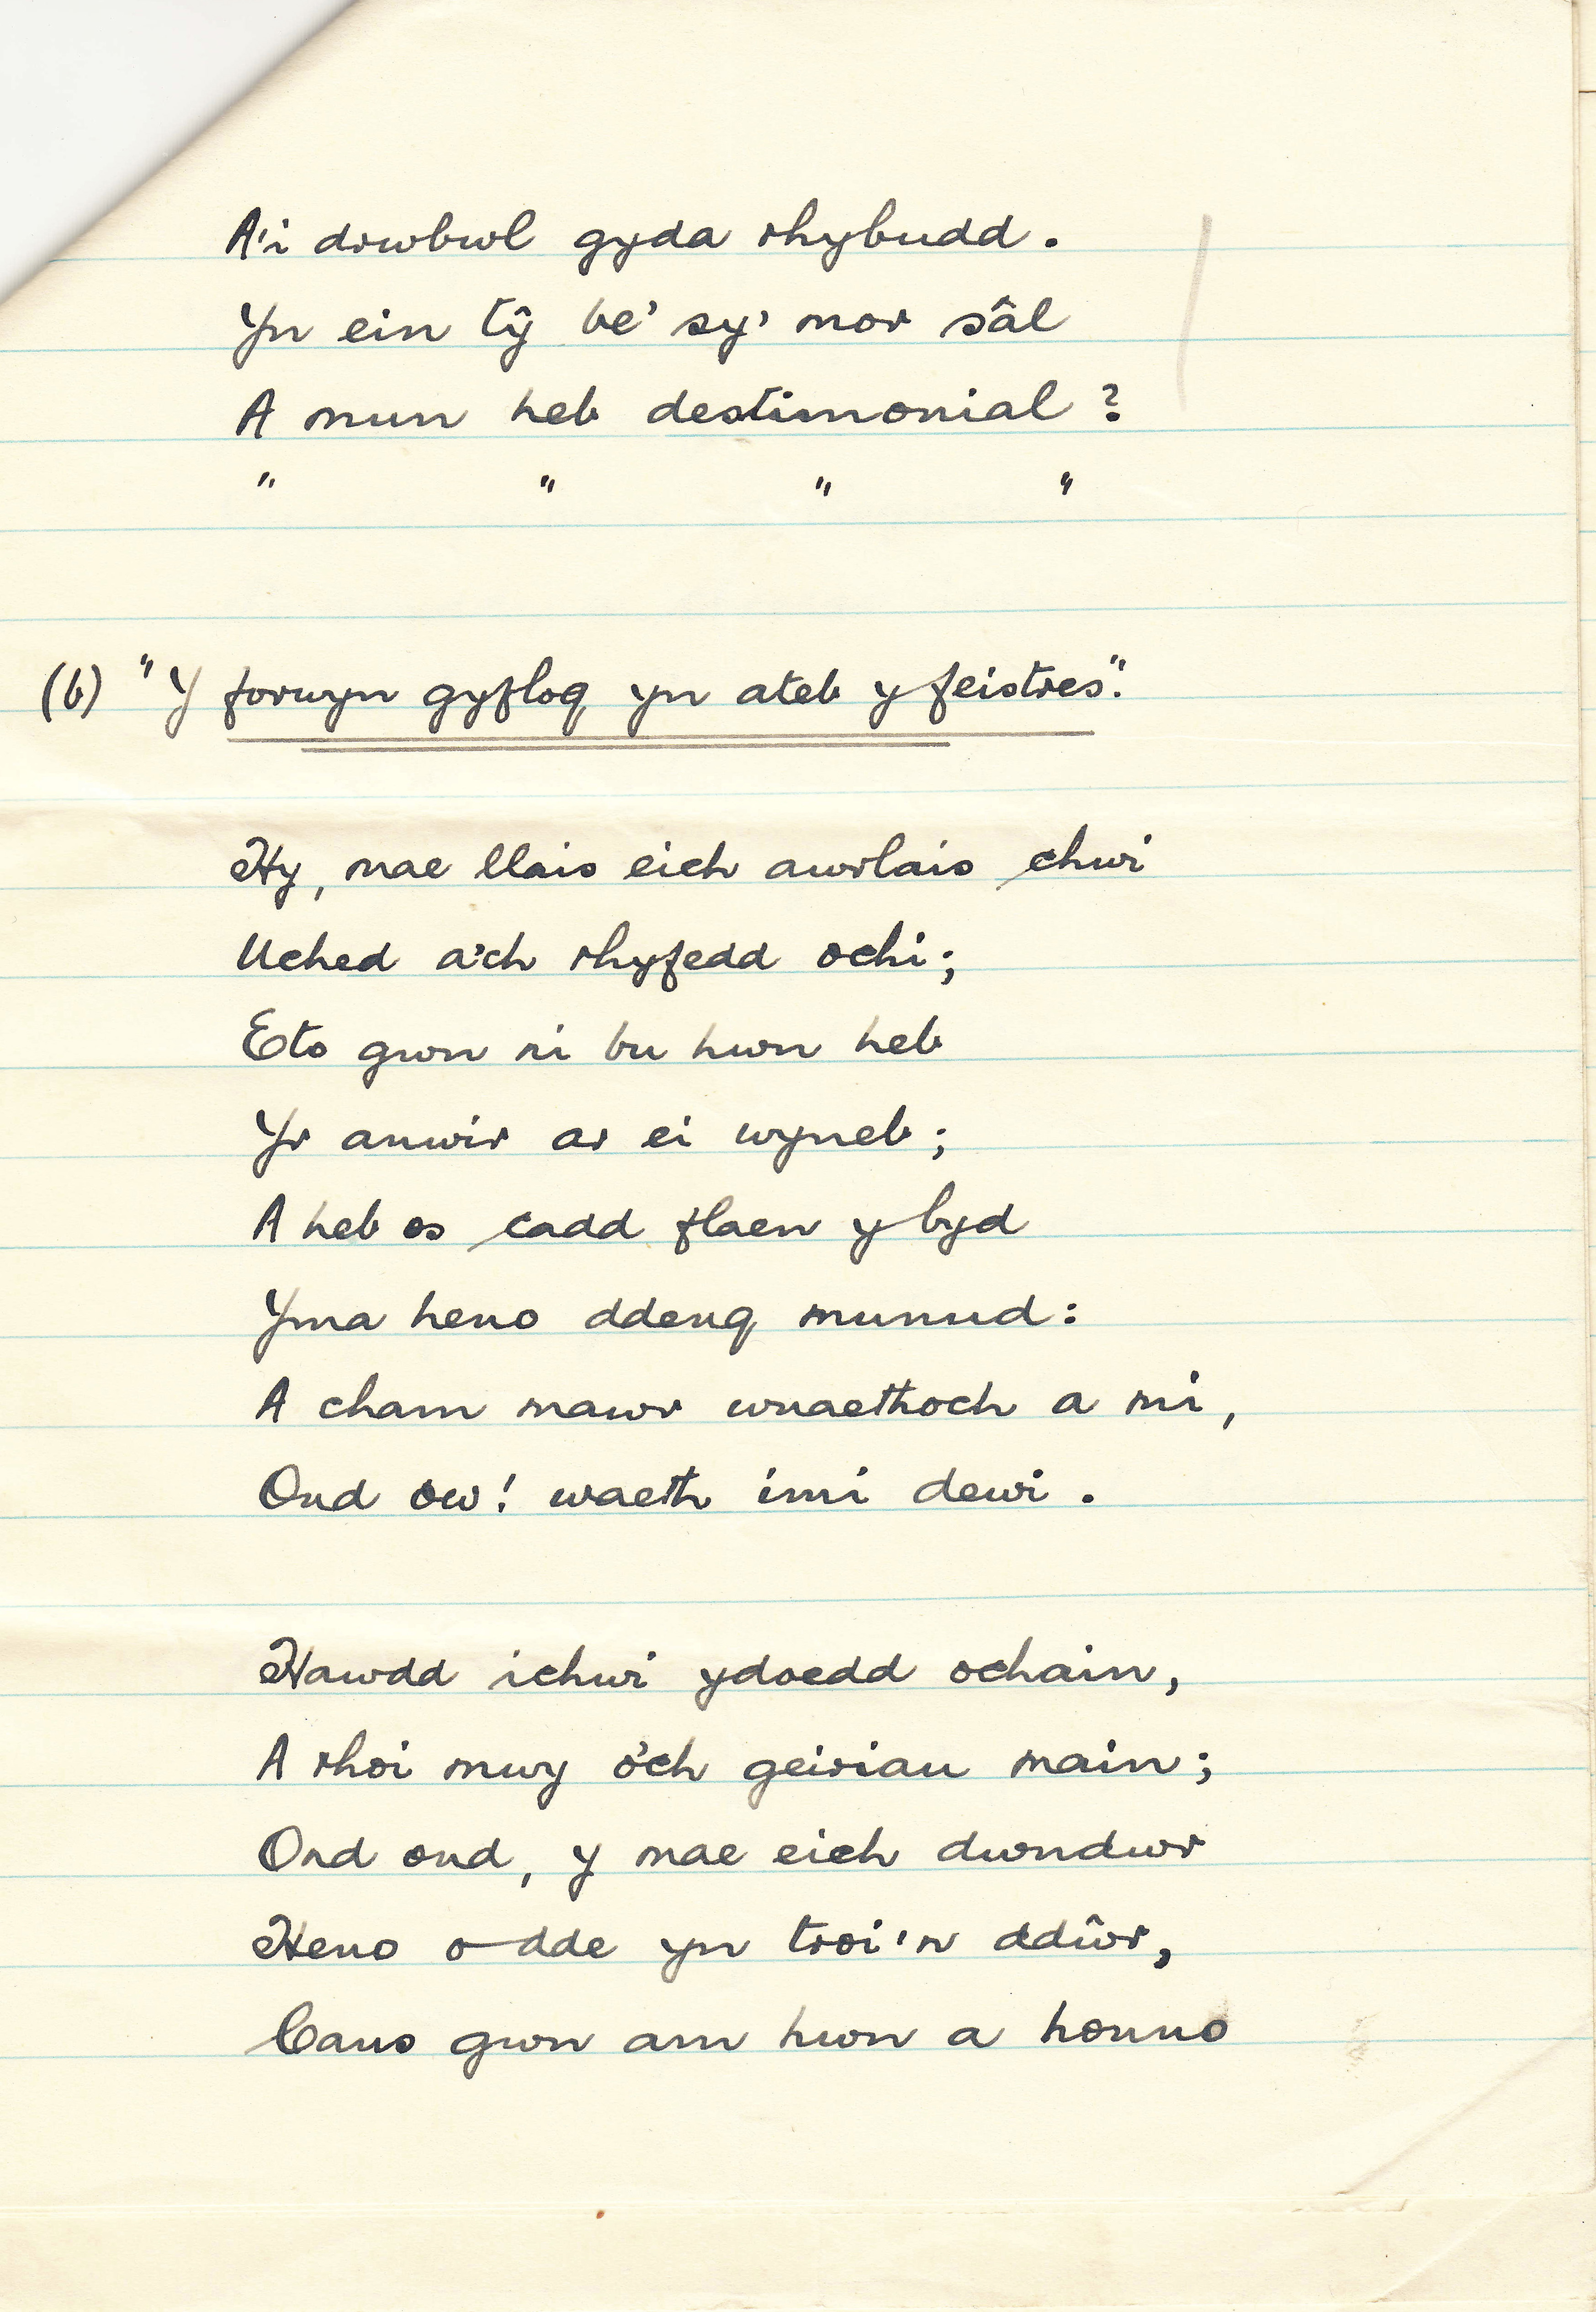 A'i drwbwl gyda rhybudd.
Yn ein tŷ be' sy' mor sâl
A mun heb destimonial?
" " " "
(b) "Y forwyn gyflog yn ateb y feistres".
Hy, mae llais eich awrlais chwi
Uched a'ch rhyfedd ochi;
Eto gwn ni bu hwn heb
Yr anwir ar ei wyneb;
A heb os cadd flaen y byd
Yma heno ddeng munud:
A cham mawr wnaethoch a mi,
Ond ow! waeth imi dewi.
Hawdd ichwi ydoedd ochain,
A rhoi mwy o'ch geiriau main;
Ond ond, y mae eich dwndwr
Heno o-dde yn troi'n ddŵr,
Cans gwn am hwn a honno